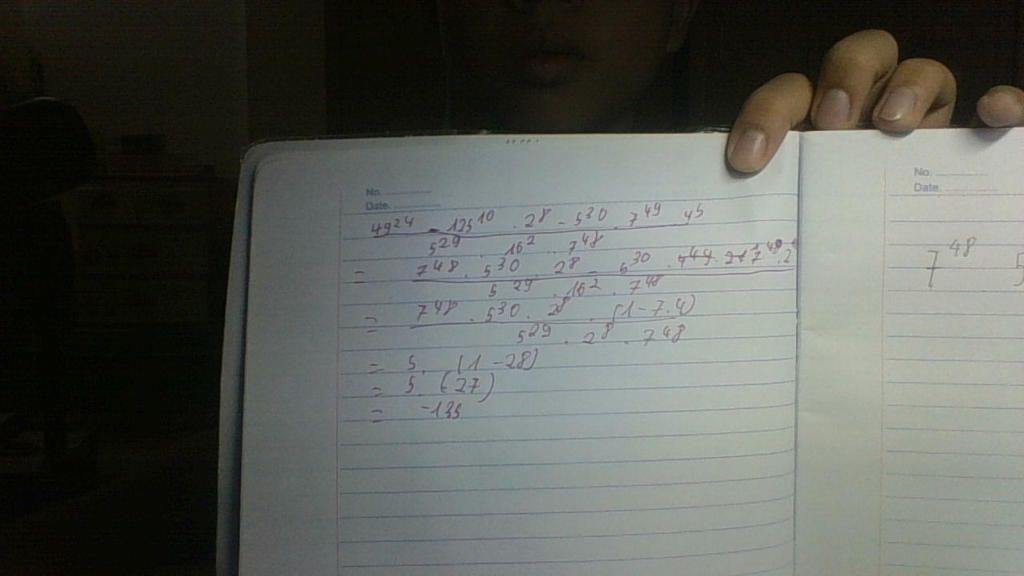 No.
Date.
49^24 . 125^10 . 2^8 - 5^30 . 7^49 . 4^5
5^29 . 16^2 . 7^48
= 7^48 . 5^30 . 2^8 - 5^30 . 7^49 .
5^29 . 16^2 . 7^48
= 7^48 . 5^30 . 2^8 . (1 - 7.4)
5^29 . 2^8 . 7^48
= 5 . (1 - 28)
= 5 . (-27)
= -135
No.
Date.
7^48 5